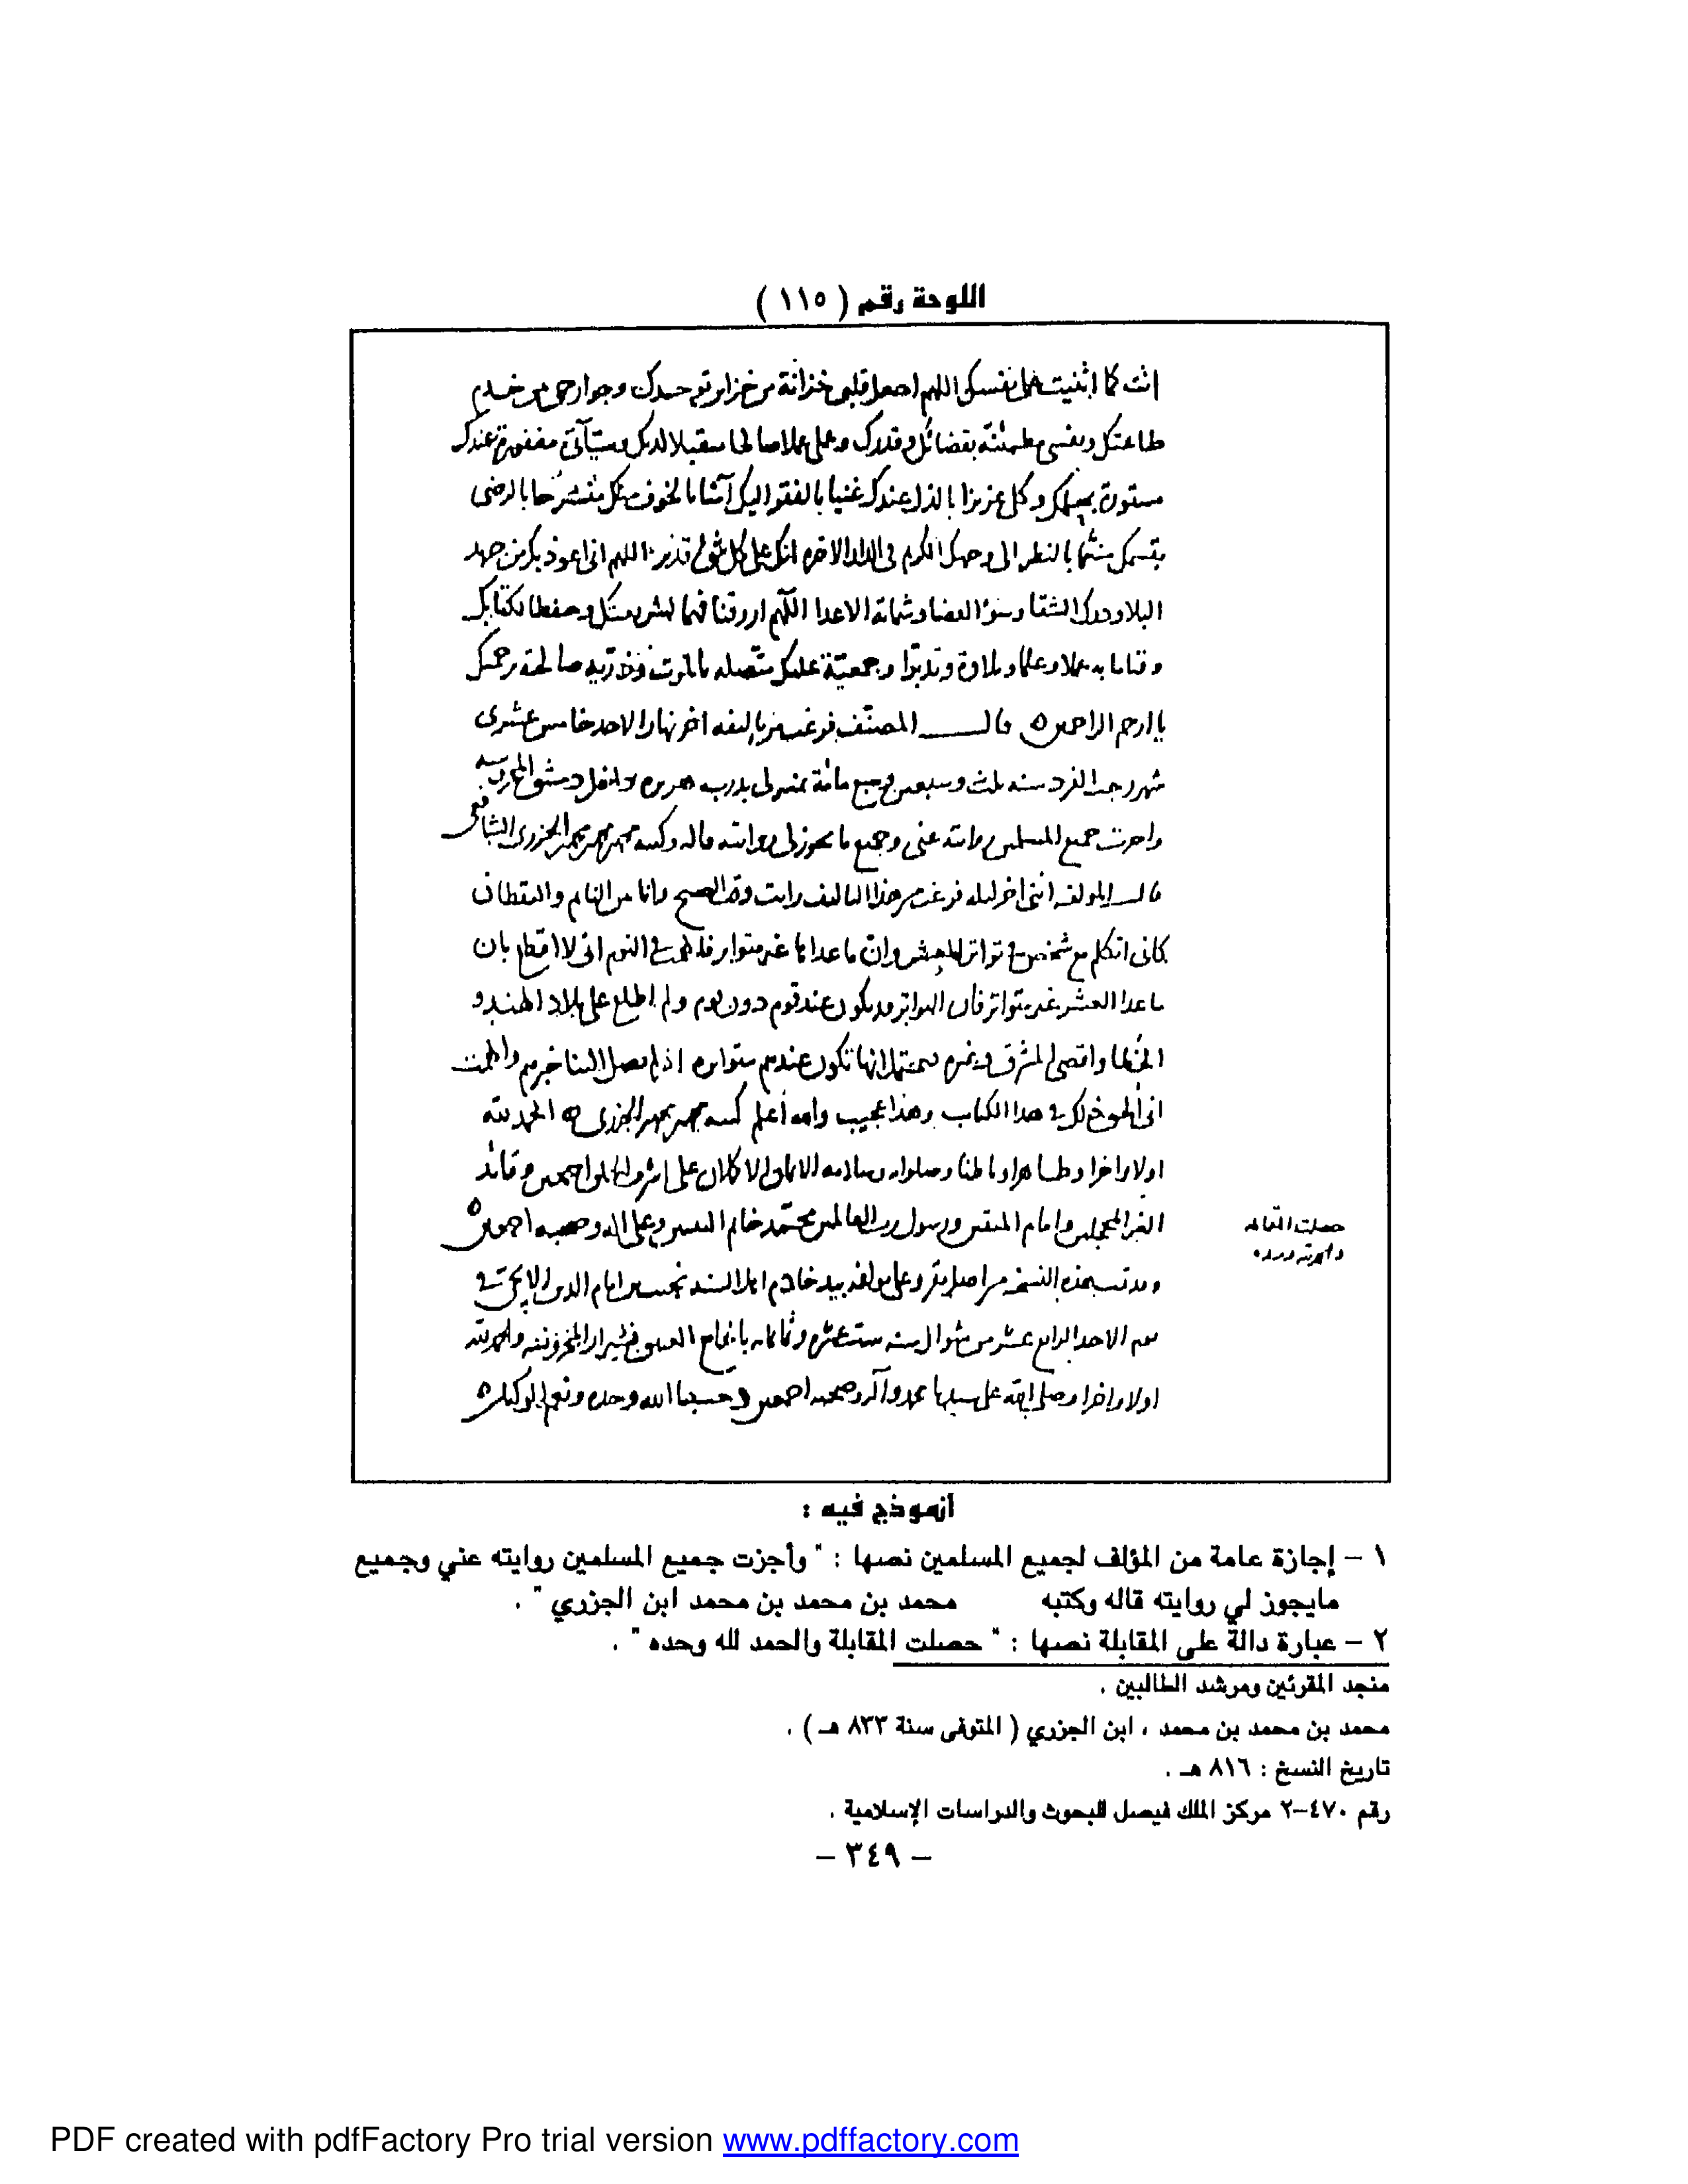 اللوحة رقم ( ١١٥ )
انت كما اثنيت على نفسك اللهم اجعل قلبى خزانة من خزاين توحيدك وجوارحى من خدم
طاعتك ونفسى مطمئنة بقضائك وقدرك وعملى عملا صالحا متقبلا لديك وسيآتى مغفورة عندك
مستورة بحلمك وكل عزيزا بالذل عندك غنيا بالفقر اليك آمنا بالخوف منك منشرحا بالرضى
بقسمك منعّما بالنظر الى وجهك الكريم فى الدار الاخره انك على كل شئ قدير اللهم انى اعوذ بك من جهد
البلا ودرك الشقا وسوء القضا وشماتة الاعدا اللّهم ارزقنا فهما لشريعتك وحفظا لكتابك
وقياما به عملا وعلما وتلاوة وتدبّرا وجمعيّة عليك متّصله بالموت وذرّيه صالحة برحمتك
يا ارحم الراحمين ٥ قال المصنّف فرغت من تاليفه اخر نهار الاحد خامس عشرى
شهر رجب الفرد سنه ثلث وسبعين وسبع مائة بمنزلى بدرب هريره داخل دمشق المحروسه
واجزت جميع المسلمين روايته عنى وجميع ما يجوز لى روايته قاله وكتبه محمد بن محمد بن محمد الجزرى الشافعى
قال المولف اننى اخر ليله فرغت من هذا التاليف رايت وقت الصبح وانا بين النايم واليقظان
كانى اتكلم مع شخص فى تواتر العشر وان ما عداها غير متواتر فالهمت فى النوم انى لا اقطع بان
ما عدا العشر غير متواتر فان التواتر قد يكون عند قوم دون قوم ولم اطلع على بلاد الهند و
الخطا واقصى المشرق وغيره فيحتمل انها تكون عندهم متواتره اذ لم يصل الينا خبرهم والهمت
انى الحق ذلك فى هذا الكتاب وهذا عجيب والله أعلم كتبه محمد بن محمد الجزرى ٥ الحمد لله
اولا واخرا وظاهرا وباطنا وصلوات وسلامه الاتمان الاكملان على اشرف الخلق اجمعين وقائد
الغر المحجلين وامام المتقين ورسول رب العالمين محمّد خاتم النبيين وعلى اله وصحبه اجمعين ٥
وقد تمت هذه النسخه من اصل مقرو على مولفه بيد خادم اهل السنه
يوم الاحد الرابع عشر من شوال سنه ست عشره وثمانمايه بالجامع العتيق بشيراز المحروسه والحمد لله
اولا واخرا وصلى الله على سيدنا محمد وآله وصحبه اجمعين وحسبنا الله وحده ونعم الوكيل ٥
حصلت المقابله
والحمد لله وحده
أنموذج فيه :
١ – إجازة عامة من المؤلف لجميع المسلمين نصها : " وأجزت جميع المسلمين روايته عني وجميع
مايجوز لي روايته قاله وكتبه محمد بن محمد بن محمد ابن الجزري " .
٢ – عبارة دالة على المقابلة نصها : " حصلت المقابلة والحمد لله وحده " .
منجد المقرئين ومرشد الطالبين .
محمد بن محمد بن محمد ، ابن الجزري ( المتوفى سنة ٨٣٣ هـ ) .
تاريخ النسخ : ٨١٦ هـ .
رقم ٤٧٠–٢ مركز الملك فيصل للبحوث والدراسات الإسلامية .
– ٣٤٩ –
PDF created with pdfFactory Pro trial version www.pdffactory.com